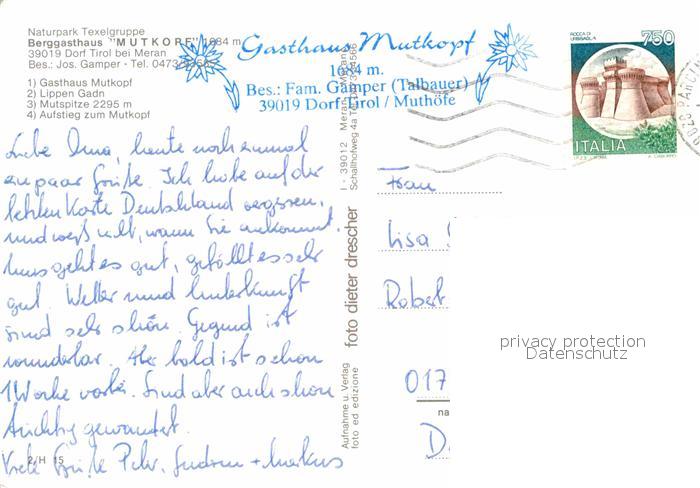 Naturpark Texelgruppe
Berggasthaus "MUTKOPF" 1684 m
39019 Dorf Tirol bei Meran
Bes.: Jos. Gamper - Tel. 0473/
1) Gasthaus Mutkopf
2) Lippen Gadn
3) Mutspitze 2295 m
4) Aufstieg zum Mutkopf
Gasthaus Mutkopf
1684 m.
Bes.: Fam. Gamper (Talbauer)
39019 Dorf Tirol / Muthöfe
ROCCA DI
URBISAGLIA
750
ITALIA
Liebe Oma, heute noch einmal
ein paar Grüße. Ich habe auf der
letzten Karte Deutschland vergessen,
und weiß nicht, wann Sie ankommt.
Uns geht es gut, gefällt es sehr
gut. Wetter und Unterkunft
sind sehr schön. Gegend ist
wunderbar. Aber bald ist schon
1 Woche vorbei. Sind aber auch schon
tüchtig gewandert.
Viele Grüße Peter, Gudrun + Markus
2/H 15
I - 39012 Meran
Schallhofweg 4a Tel.
foto dieter drescher
Aufnahme u. Verlag
foto ed edizione
Frau
Lisa
Robert
017
na
D
privacy protection
Datenschutz